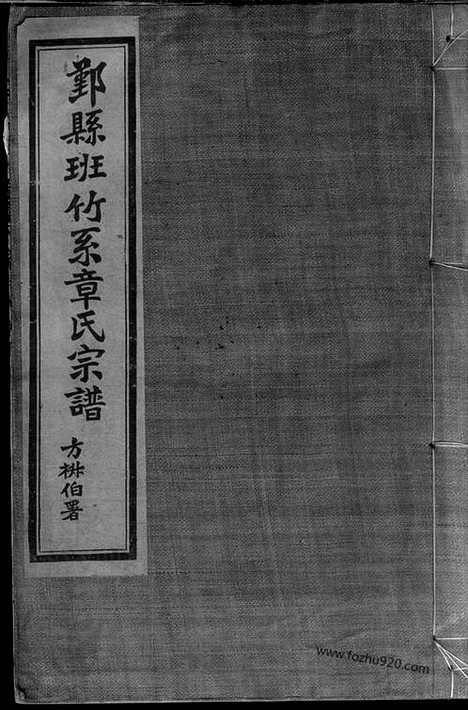 鄞縣班竹系章氏宗譜
方椒伯署
www.fozhu920.com